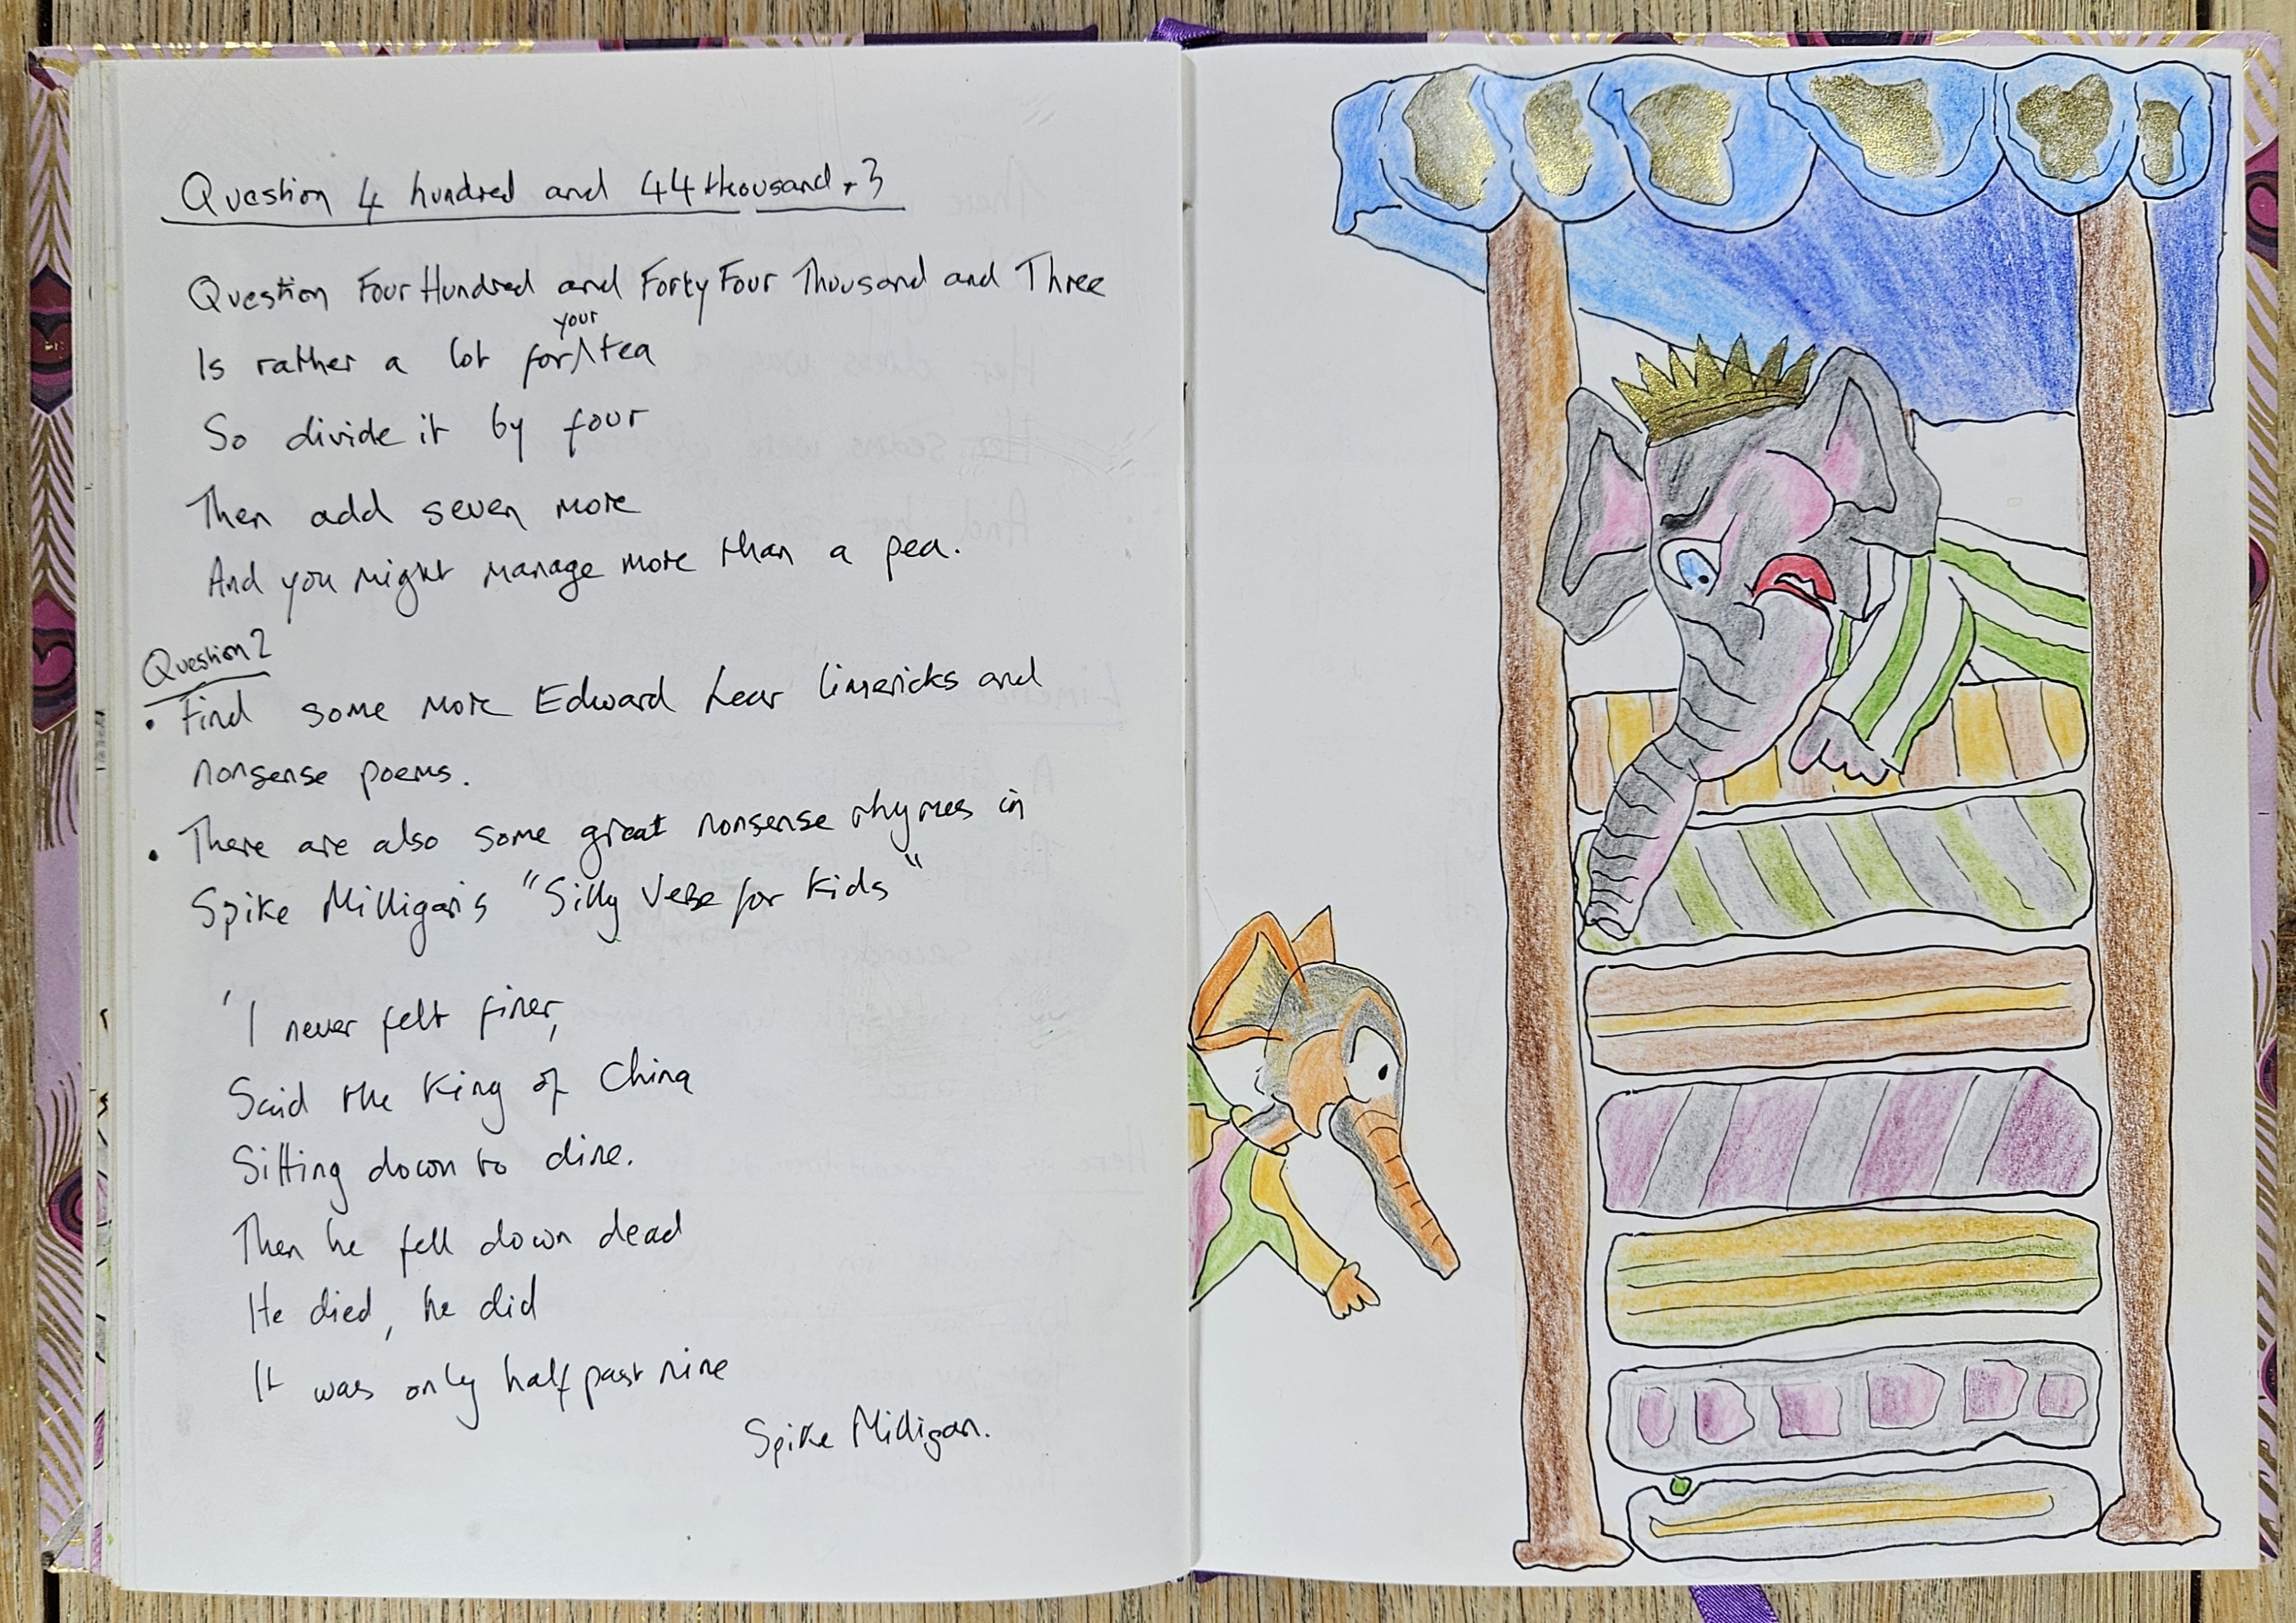 Question 4 hundred and 44 thousand + 3
Question Four Hundred and Forty Four Thousand and Three
Is rather a lot for your tea
So divide it by four
Then add seven more
And you might manage more than a pea.
Question 2
• Find some more Edward Lear limericks and
nonsense poems.
• There are also some great nonsense rhymes in
Spike Milligan's "Silly Verse for Kids"
'I never felt finer,
Said the King of China
Sitting down to dine.
Then he fell down dead
He died, he did
It was only half past nine
Spike Milligan.